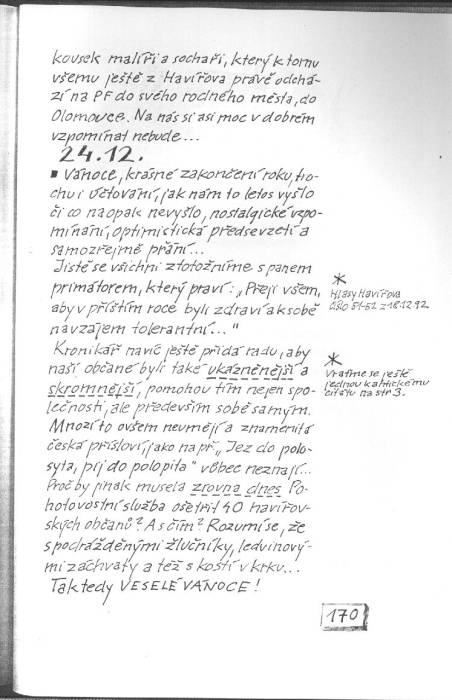 kousek malíři a sochaři, který k tomu
všemu ještě z Havířova právě odchá-
zí na PF do svého rodného města, do
Olomouce. Na nás si asi moc v dobrém
vzpomínat nebude...
24.12.
▪ Vánoce, krásné zakončení roku, tro-
chu i účtování, jak nám to letos vyšlo
či co naopak nevyšlo, nostalgické vzpo-
mínání, optimistická předsevzetí a
samozřejmě přání...
Jistě se všichni ztotožníme s panem
primátorem, který praví: „Přeji všem,
aby v příštím roce byli zdraví a k sobě
navzájem tolerantní..."
*
Hlasy Havířova
číslo 51-52 z 18.12.92
Kronikář navíc ještě přidá radu, aby
naši občané byli také ukázněnější a
skromnější, pomohou tím nejen spo-
lečnosti, ale především sobě samým.
Mnozí to ovšem neumějí a znamenitá
česká přísloví, jako např. „Jez do polo-
syta, pij do polopita" vůbec neznají...
Proč by jinak musela zrovna dnes Po-
hotovostní služba ošetřit 40 havířov-
ských občanů? A s čím? Rozumí se, že
s podrážděnými žlučníky, ledvinový-
mi záchvaty a též s kostí v krku...
Tak tedy VESELÉ VÁNOCE!
*
Vraťme se ještě
jednou k antickému
citátu na str 3.
170